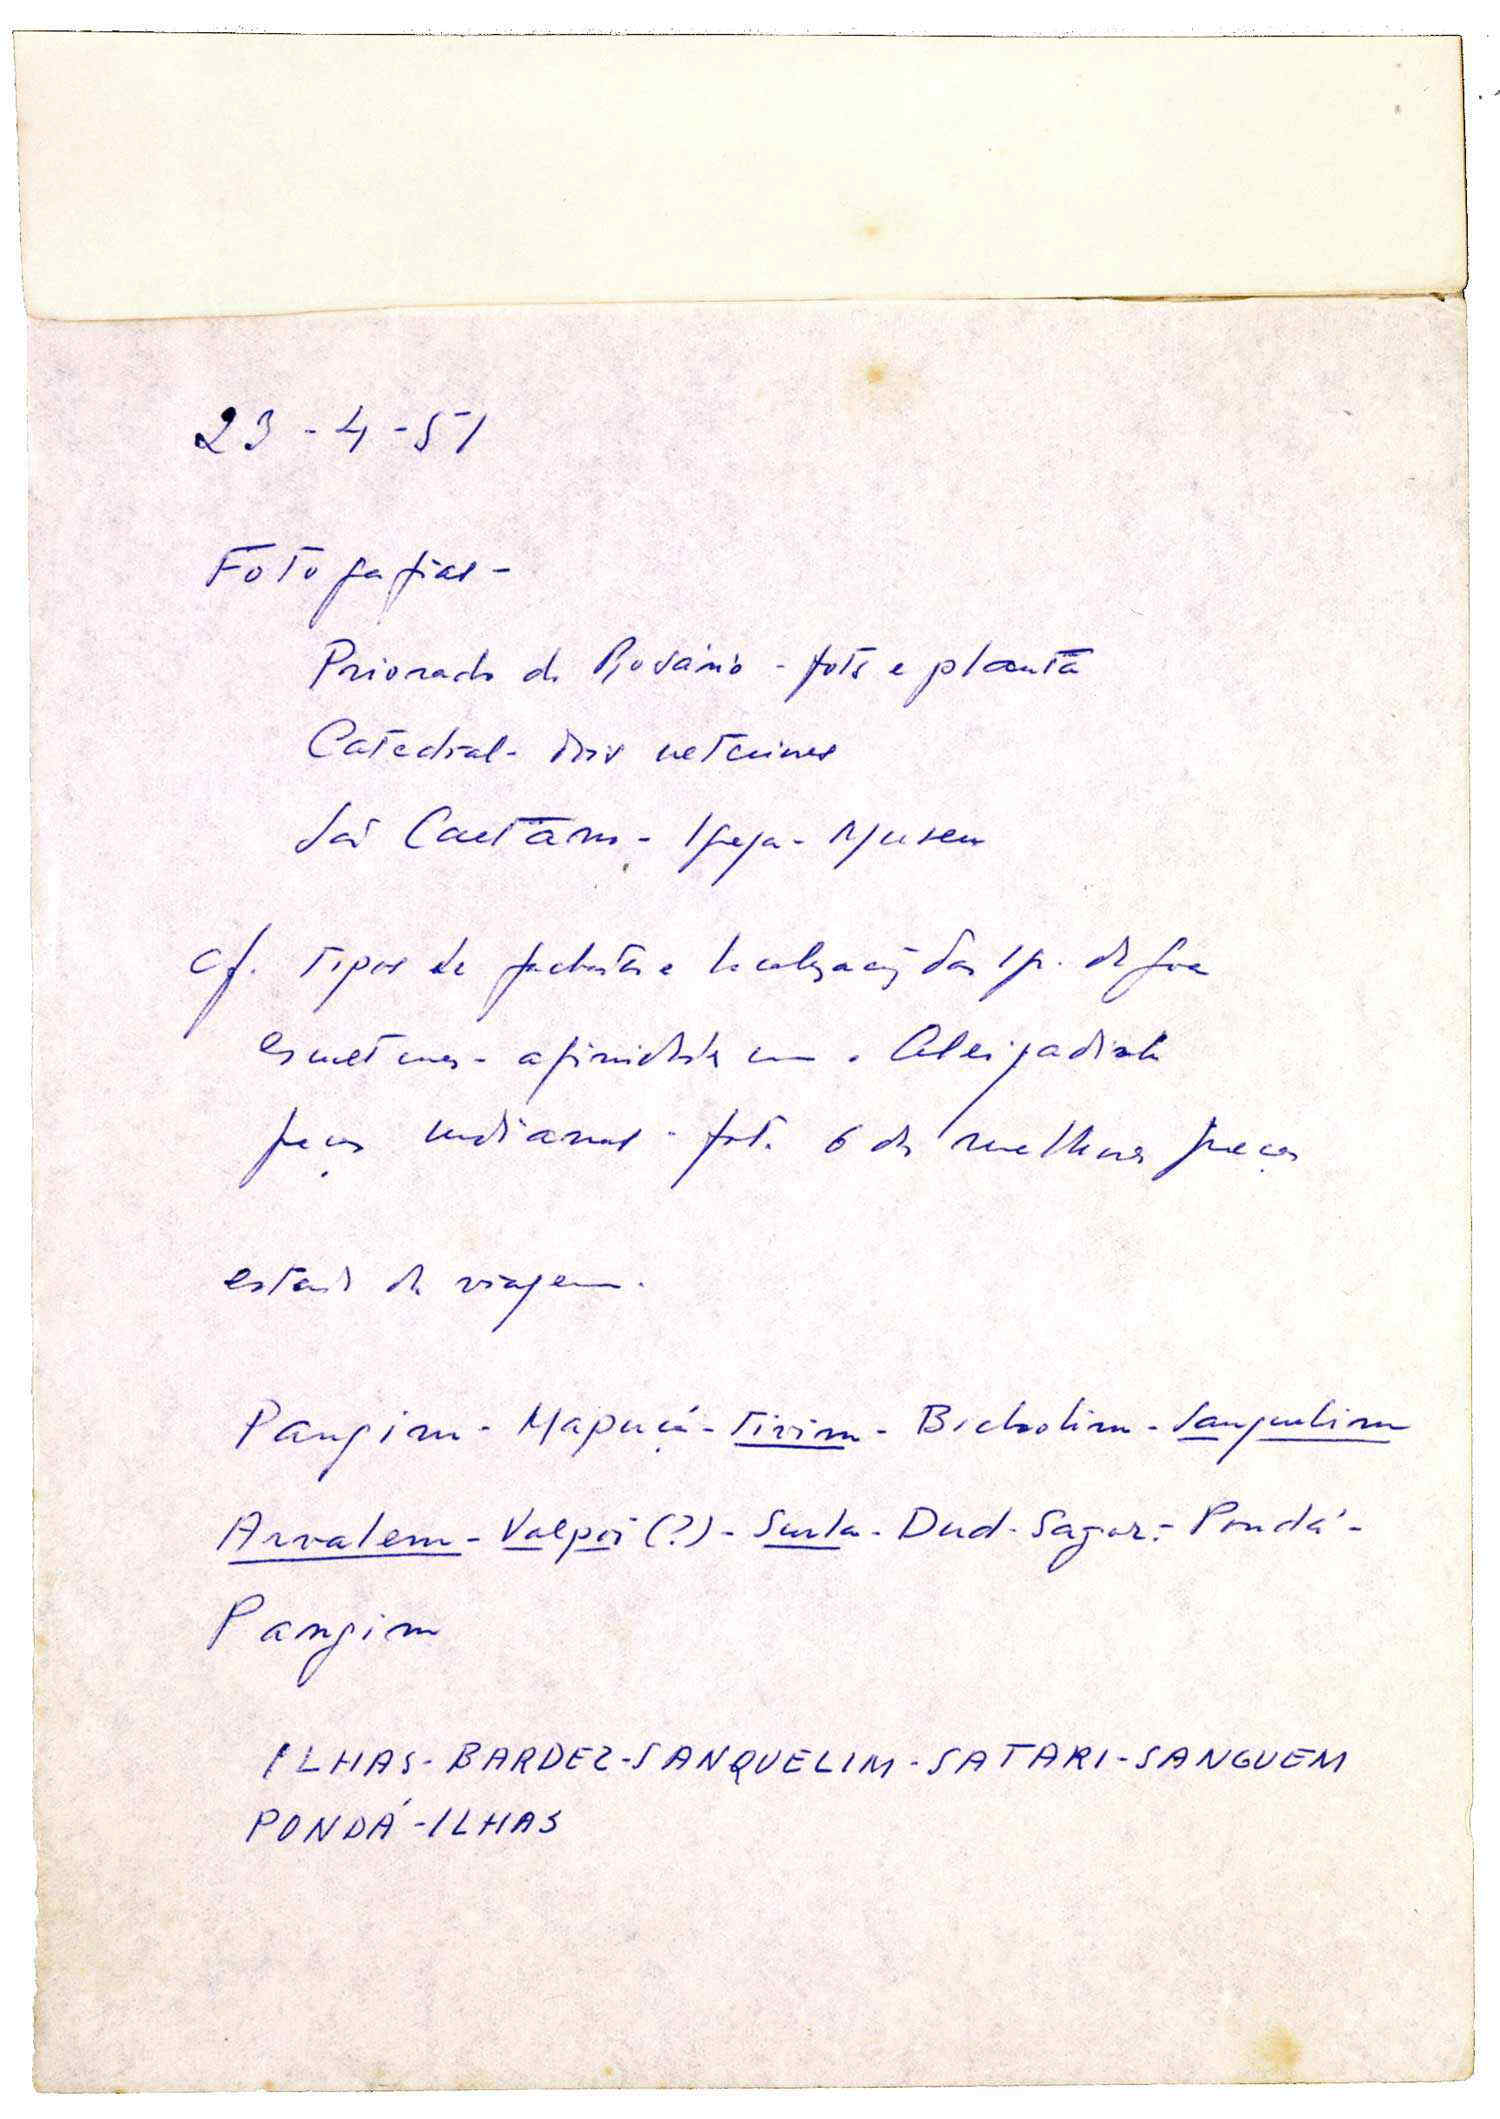 23-4-51
Fotografias -
Priorado do Rosário - fots e planta
Catedral - dois
São Caetano - Igreja - Museu
cf. tipos de fachadas e localização das Ig. de Goa
- afinidade com o Aleijadinho
peças indianas - fot. 6 das melhores peças
estado da viagem.
Pangim - Mapuçá - Tivim - Bicholim - Sanquelim
Arvalem - Valpoi (?) - Surla - Dud-Sagar - Pondá -
Pangim
ILHAS - BARDEZ - SANQUELIM - SATARI - SANGUEM
PONDÁ - ILHAS